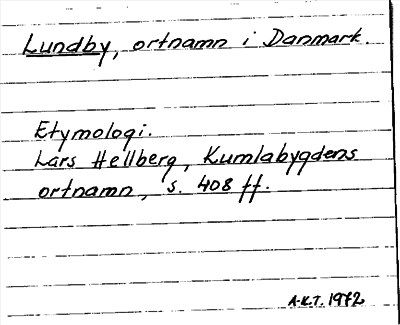 Lundby, ortnamn i Danmark.
Etymologi.
Lars Hellberg, Kumlabygdens
ortnamn, s. 408 ff.
A.K.T. 1972